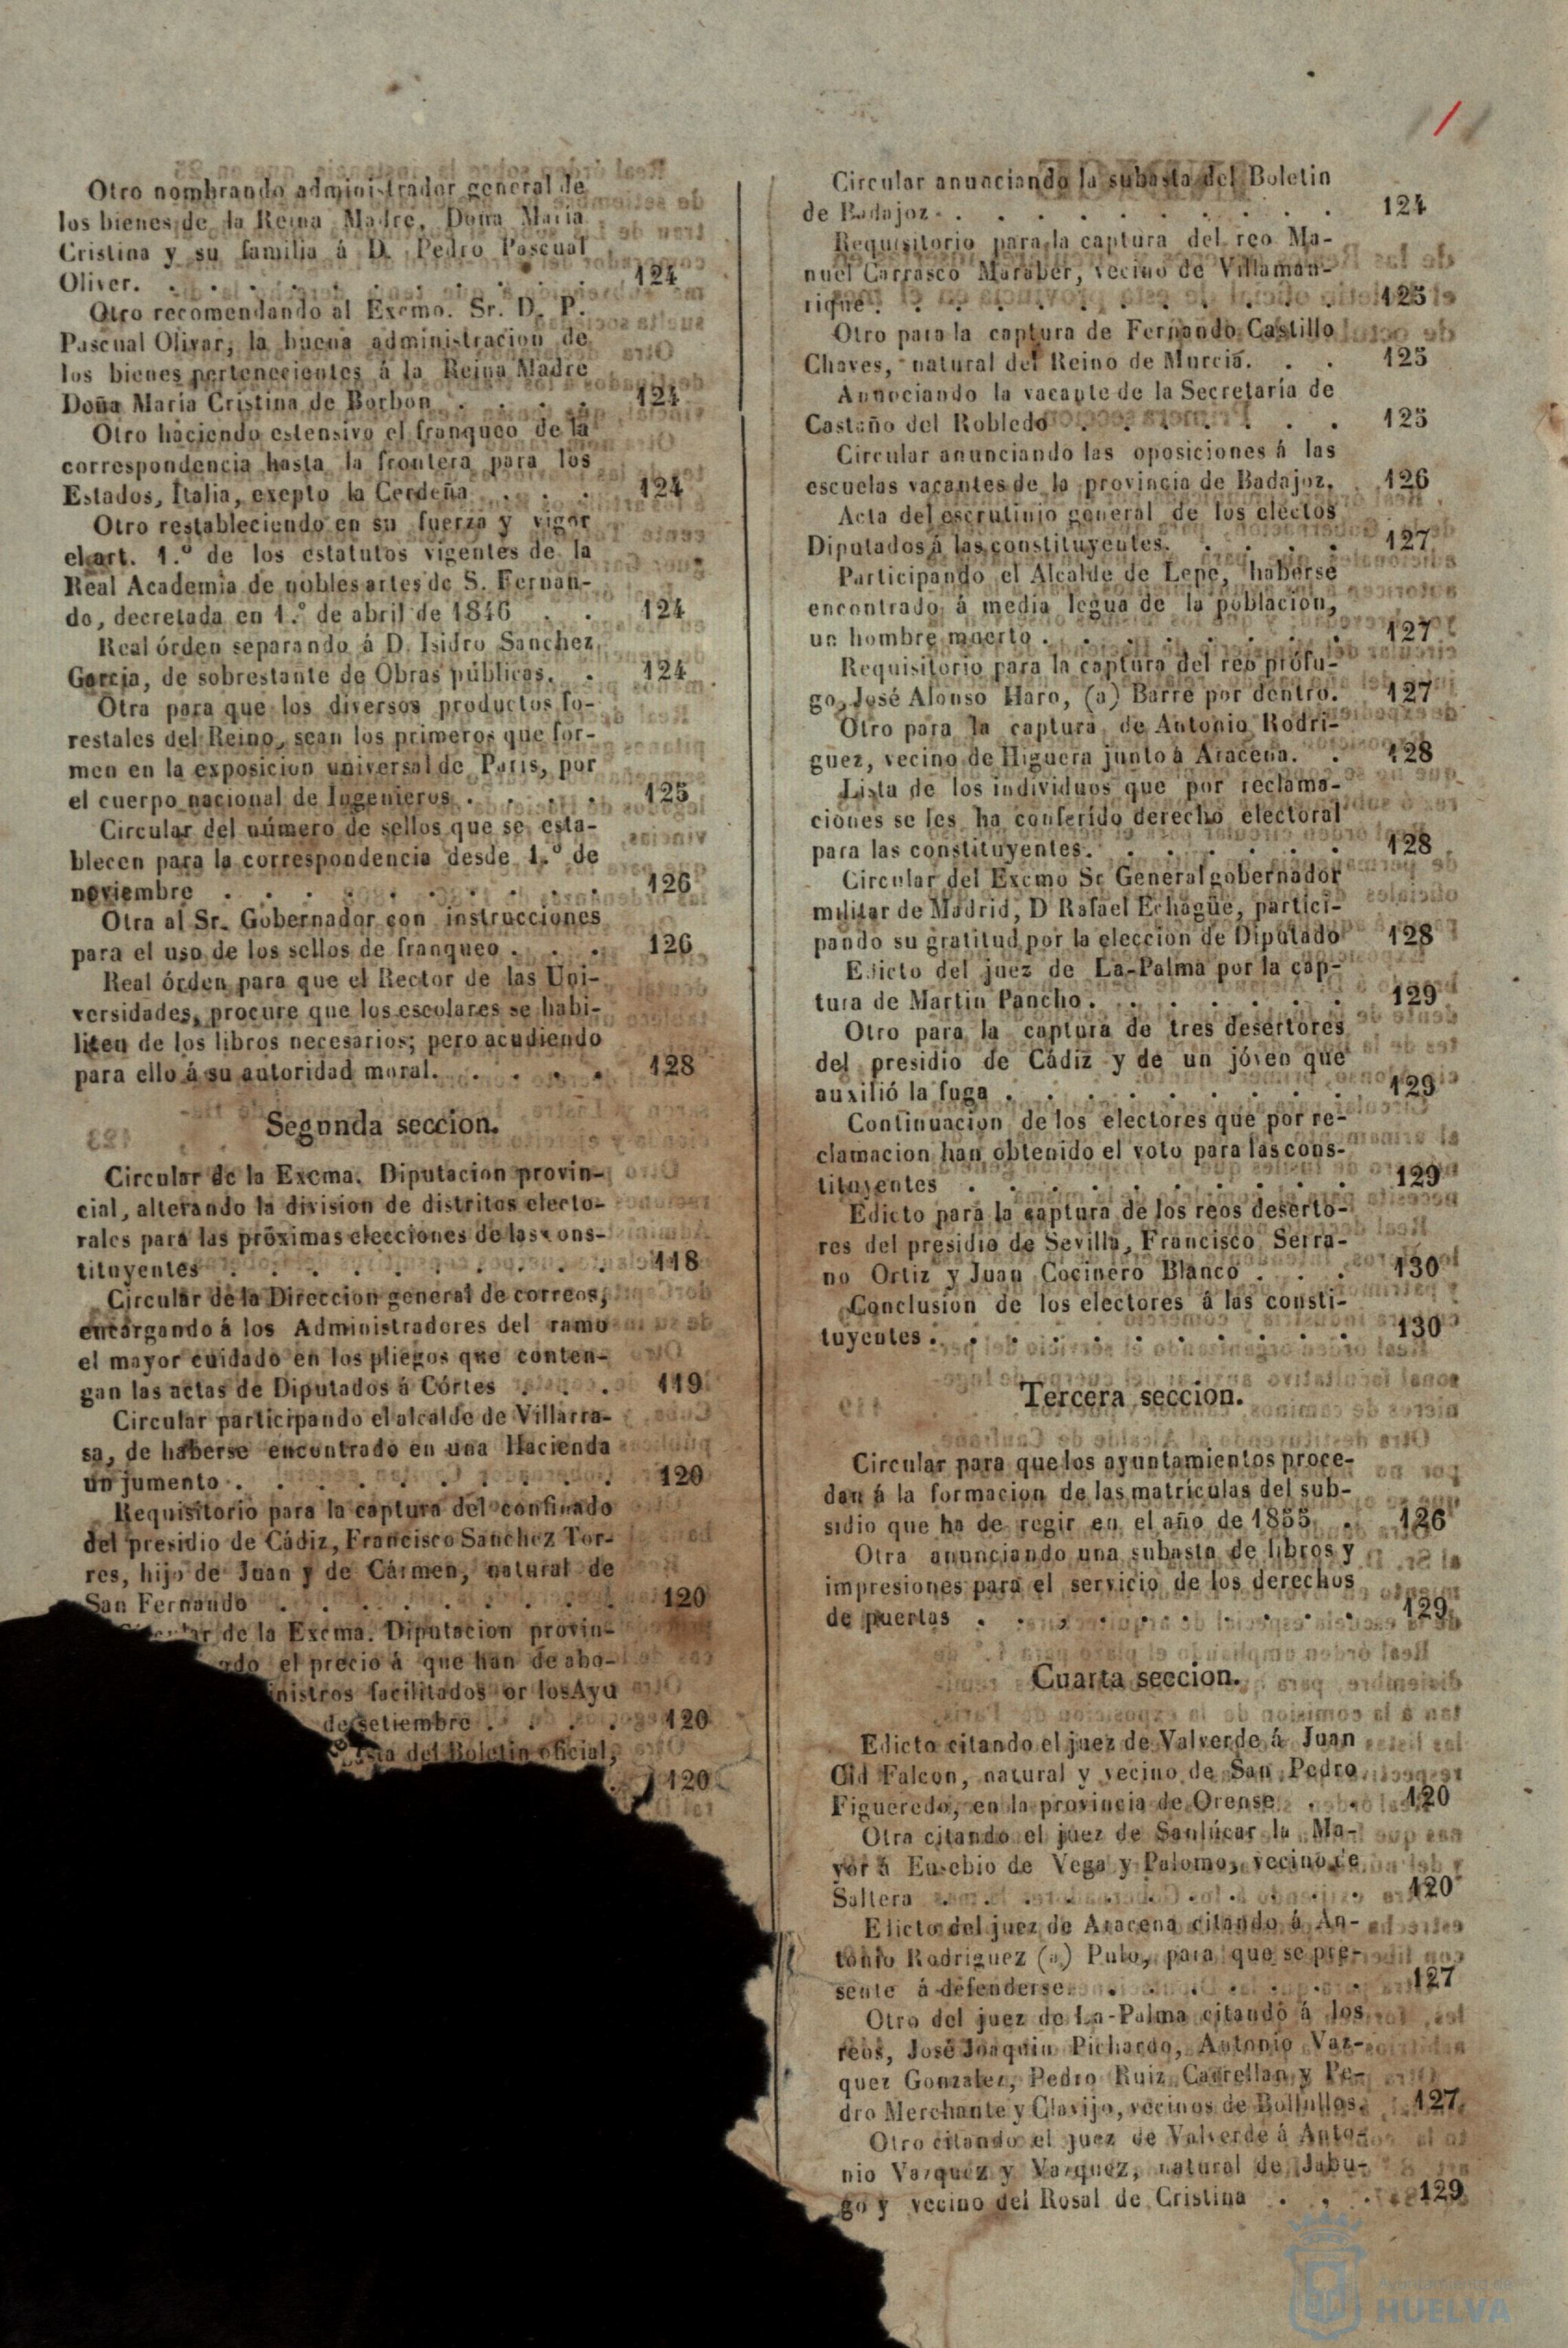 Otro nombrando administrador general de
los bienes de la Reina Madre, Doña Maria
Cristina y su familia á D. Pedro Pascual
Oliver. . . . . . . . . . . . 124
Otro recomendando al Excmo. Sr. D. P.
Pascual Olivar, la buena administracion de
los bienes pertenecientes á la Reina Madre
Doña Maria Cristina de Borbon . . . . 124
Otro haciendo estensivo el franqueo de la
correspondencia hasta la frontera para los
Estados, Italia, exepto la Cerdeña . . . 124
Otro restableciendo en su fuerza y vigor
el art. 1.º de los estatutos vigentes de la
Real Academia de nobles artes de S. Fernan-
do, decretada en 1.º de abril de 1846 . . 124
Real órden separando á D. Isidro Sanchez
Garcia, de sobrestante de Obras públicas. . 124
Otra para que los diversos productos fo-
restales del Reino, sean los primeros que for-
men en la exposicion universal de Paris, por
el cuerpo nacional de Ingenieros . . . . 125
Circular del número de sellos que se esta-
blecen para la correspondencia desde 1.º de
noviembre . . . . . . . . . . 126
Otra al Sr. Gobernador con instrucciones
para el uso de los sellos de franqueo . . . 126
Real órden para que el Rector de las Uni-
versidades, procure que los escolares se habi-
liten de los libros necesarios; pero acudiendo
para ello á su autoridad moral. . . . . 128
Segunda seccion.
Circular de la Excma. Diputacion provin-
cial, alterando la division de distritos electo-
rales para las próximas elecciones de las cons-
tituyentes . . . . . . . . . . 118
Circular de la Direccion general de correos,
encargando á los Administradores del ramo
el mayor cuidado en los pliegos que conten-
gan las actas de Diputados á Córtes . . . 119
Circular participando el alcalde de Villarra-
sa, de haberse encontrado en una Hacienda
un jumento . . . . . . . . . . 120
Requisitorio para la captura del confinado
del presidio de Cádiz, Francisco Sanchez Tor-
res, hijo de Juan y de Cármen, natural de
San Fernando . . . . . . . . . 120
ar de la Excma. Diputacion provin-
do el precio á que han de abo-
inistros facilitados or los Ayu
de setiembre . . . . 120
del Boletin oficial,
. 120
Circular anunciando la subasta del Boletin
de Badajoz . . . . . . . . . . 124
Requisitorio para la captura del reo Ma-
nuel Carrasco Maraber, vecino de Villaman-
rique . . . . . . . . . . . . 125
Otro para la captura de Fernando Castillo
Chaves, natural del Reino de Murcia. . . 125
Anunciando la vacante de la Secretaría de
Castaño del Robledo . . . . . . . 125
Circular anunciando las oposiciones á las
escuelas vacantes de la provincia de Badajoz. 126
Acta del escrutinio general de los electos
Diputados á las constituyentes. . . . . 127
Participando el Alcalde de Lepe, haberse
encontrado á media legua de la poblacion,
un hombre muerto . . . . . . . . 127
Requisitorio para la captura del reo prófu-
go, José Alonso Haro, (a) Barre por dentro. 127
Otro para la captura de Antonio Rodri-
guez, vecino de Higuera junto á Aracena. . 128
Lista de los individuos que por reclama-
ciones se les ha conferido derecho electoral
para las constituyentes. . . . . . . 128
Circular del Excmo Sr General gobernador
militar de Madrid, D Rafael Echagüe, partici-
pando su gratitud por la eleccion de Diputado 128
Edicto del juez de La-Palma por la cap-
tura de Martin Pancho . . . . . . . 129
Otro para la captura de tres desertores
del presidio de Cádiz y de un jóven que
auxilió la fuga . . . . . . . . . 129
Continuacion de los electores que por re-
clamacion han obtenido el voto para las cons-
tituyentes . . . . . . . . . . 129
Edicto para la captura de los reos deserto-
res del presidio de Sevilla, Francisco Serra-
no Ortiz y Juan Cocinero Blanco . . . 130
Conclusion de los electores á las consti-
tuyentes . . . . . . . . . . . 130
Tercera seccion.
Circular para que los ayuntamientos proce-
dan á la formacion de las matrículas del sub-
sidio que ha de regir en el año de 1855 . 126
Otra anunciando una subasta de libros y
impresiones para el servicio de los derechos
de puertas . . . . . . . . . . 129
Cuarta seccion.
Edicto citando el juez de Valverde á Juan
Cid Falcon, natural y vecino de San Pedro
Figueredo, en la provincia de Orense . . 120
Otra citando el juez de Sanlúcar la Ma-
yor á Eusebio de Vega y Palomo, vecino de
Saltera . . . . . . . . . . . 120
Edicto del juez de Aracena citando á An-
tonio Rodriguez (a) Pulo, para que se pre-
sente á defenderse. . . . . . . . 127
Otro del juez de La-Palma citando á los
reos, José Joaquin Pichardo, Antonio Vaz-
quez Gonzalez, Pedro Ruiz Castellan y Pe-
dro Merchante y Clavijo, vecinos de Bollullos. 127
Otro citando el juez de Valverde á Anto-
nio Vazquez y Vazquez, natural de Jabu-
go y vecino del Rosal de Cristina . . . 129
Ayuntamiento de
HUELVA